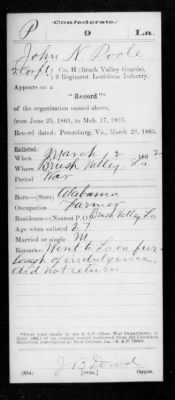 Confederate.
P 9 La.
John N. Poole
2 Corpl, Co. H (Brush Valley Guards),
9 Regiment Louisiana Infantry.
Appears on a
"Record"
of the organization named above,
from June 25, 1861, to Mch. 17, 1865.
Record dated: Petersburg, Va., March 28, 1865.
Enlisted:
When March 2, 1862
Where Brush Valley, La
Period War
Born—(State) Alabama
Occupation Farmer
Residence—(Nearest P.O.) Brush Valley La.
Age when enlisted 27
Married or single M
Remarks: Went to La on fur-
lough of indulgence,
did not return
J B Dowd
(654) Copyist.